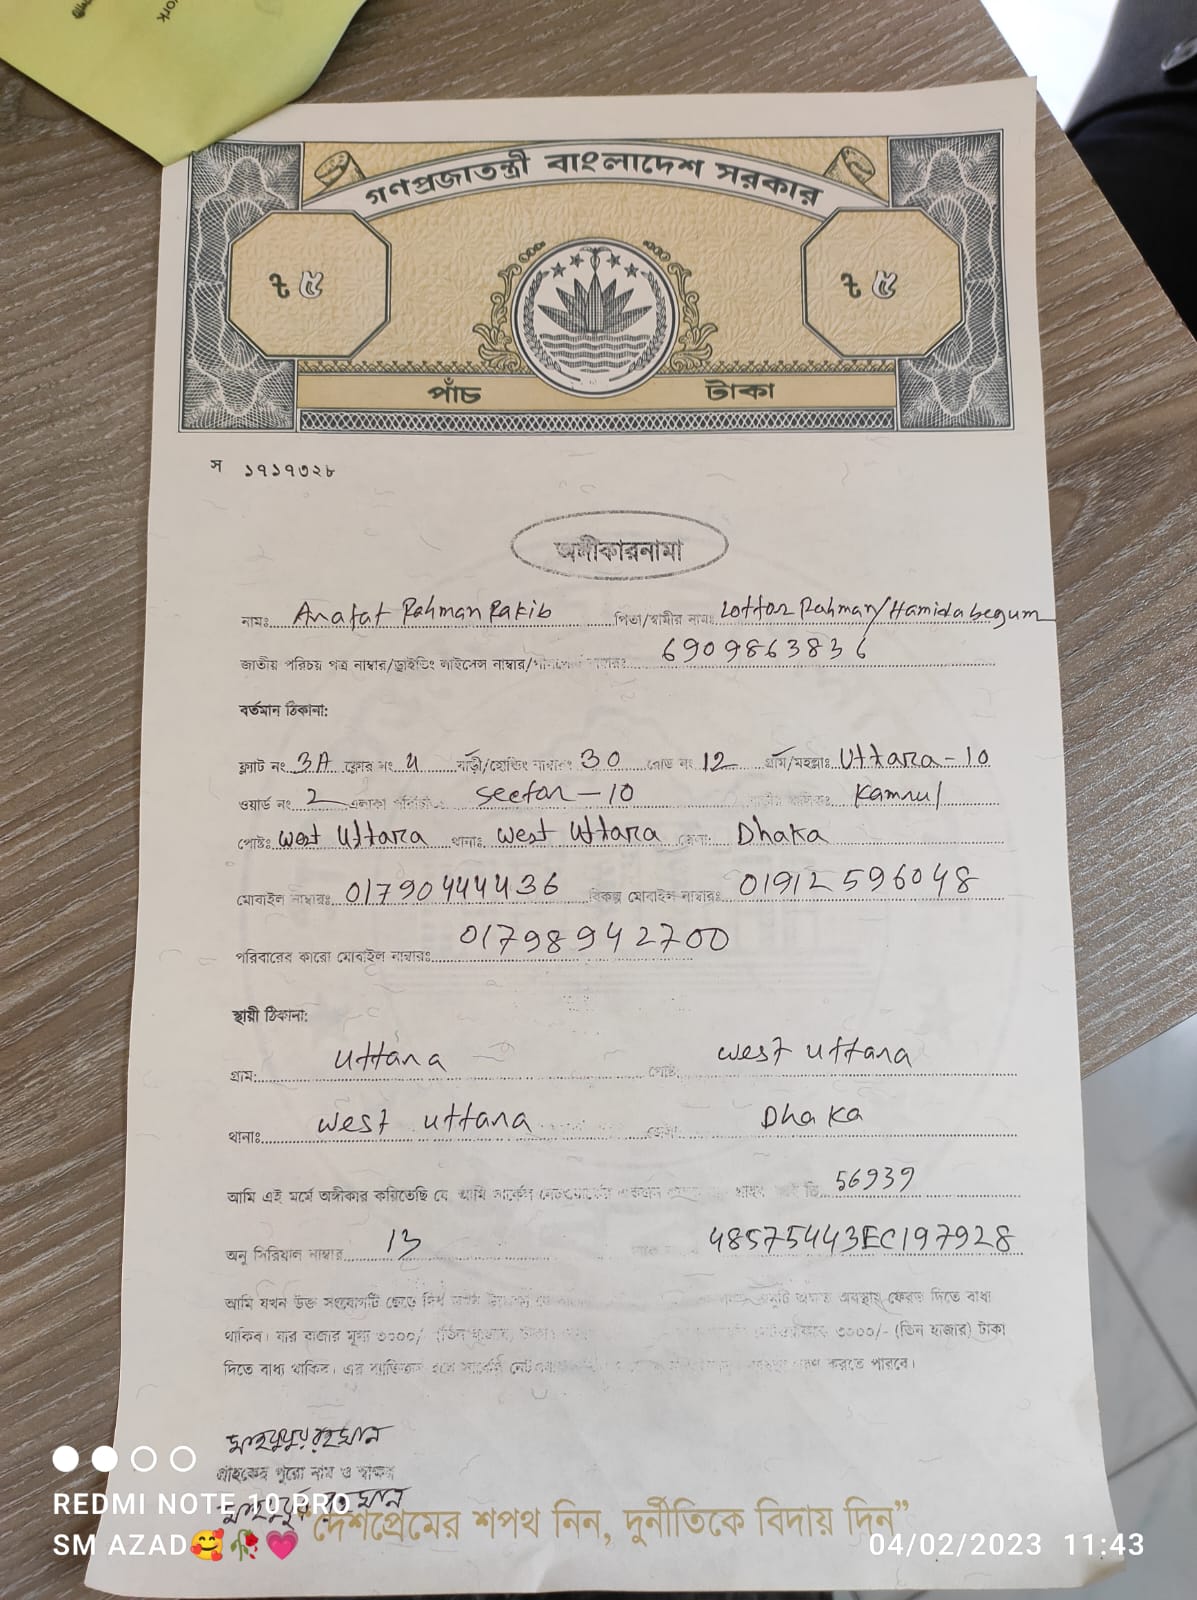 ork
গণপ্রজাতন্ত্রী বাংলাদেশ সরকার
৳ ৫ ৳ ৫
পাঁচ টাকা
স ১৭১৭৩২৮
অঙ্গীকারনামা
নামঃ Arafat Rahman Rakib পিতা/স্বামীর নামঃ Lottor Rahman/Hamida begum
জাতীয় পরিচয় পত্র নাম্বার/ড্রাইভিং লাইসেন্স নাম্বার/ 6909863836
বর্তমান ঠিকানা:
ফ্ল্যাট নং 3A ফ্লোর নং 4 বাড়ী/হোল্ডিং নাম্বারঃ 30 রোড নং 12 গ্রাম/মহল্লাঃ Uttara-10
ওয়ার্ড নং 2 এলাকা Sector-10 Kamrul
পোষ্টঃ West Uttara থানাঃ West Uttara জেলাঃ Dhaka
মোবাইল নাম্বারঃ 01790444436 বিকল্প মোবাইল নাম্বারঃ 01912596048
পরিবারের কারো মোবাইল নাম্বারঃ 01798942700
স্থায়ী ঠিকানা:
গ্রাম: Uttara পোষ্ট west uttara
থানাঃ west uttara Dhaka
আমি এই মর্মে অঙ্গীকার করিতেছি যে আমি সার্কেল 56939
অনু সিরিয়াল নাম্বার 13 48575443EC197928
আমি যখন উক্ত সংযোগটি ছেড়ে দিব অবস্থায় ফেরত দিতে বাধ্য
থাকিব। যার বাজার মূল্য ৩০০০/- (তিন হাজার) টাকা ৩০০০/- (তিন হাজার) টাকা
দিতে বাধ্য থাকিব। এর ব্যতিক্রম হলে সার্কেল করতে পারবে।
মাহবুবুর রহমান
গ্রাহকের পুরো নাম ও স্বাক্ষর
মাহবুবুর রহমান
"দেশপ্রেমের শপথ নিন, দুর্নীতিকে বিদায় দিন"
REDMI NOTE 10 PRO
SM AZAD🥰🥀💗 04/02/2023 11:43